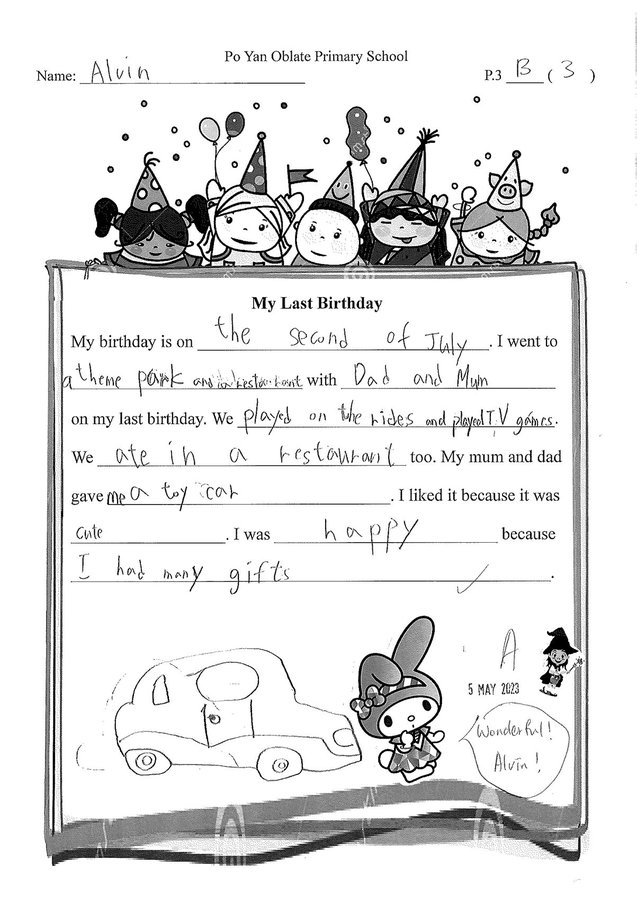 Po Yan Oblate Primary School
Name: Alvin P.3 B ( 3 )
My Last Birthday
My birthday is on the second of July . I went to
a theme park and in a restaurant with Dad and Mum
on my last birthday. We played on the rides and played T.V games.
We ate in a restaurant too. My mum and dad
gave me a toy car . I liked it because it was
cute . I was happy because
I had many gifts .
A
5 MAY 2023
Wonderful!
Alvin!